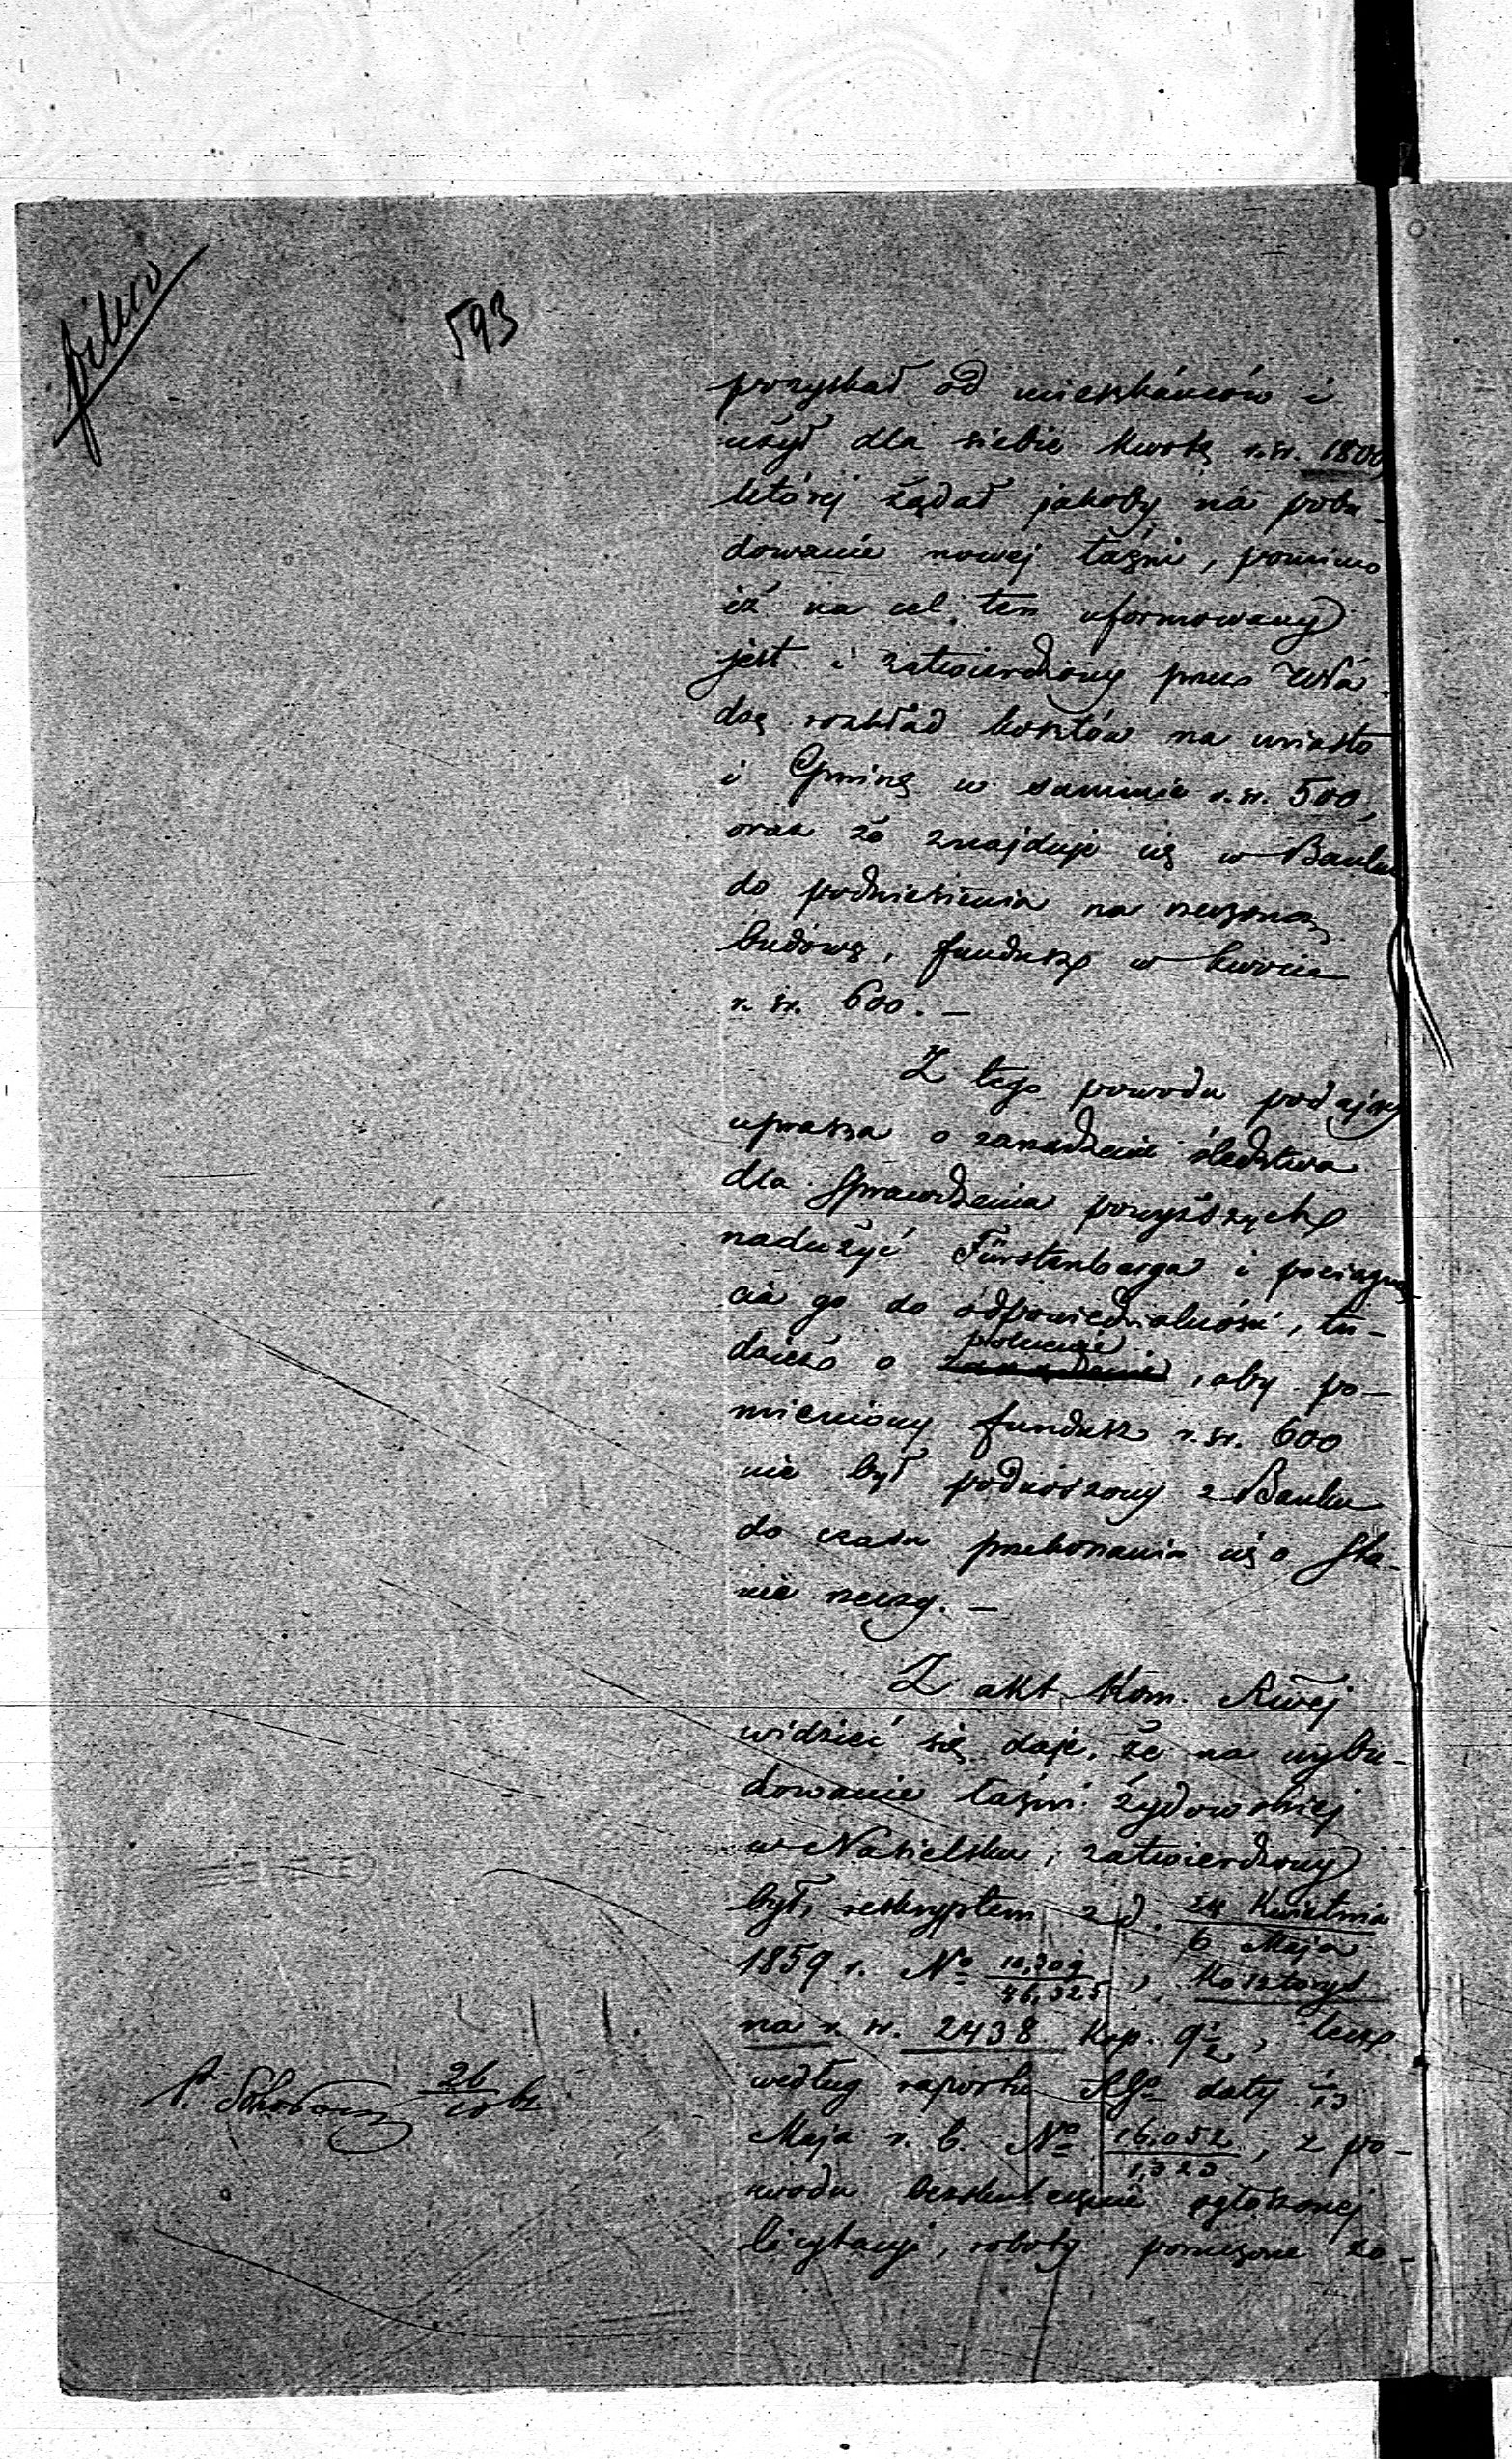 pilno
593
pozyskał od mieszkańców i
użył dla siebie kwotę r.sr. 1800
której żądał jakoby na pobu-
dowanie nowej łaźni, pomimo
iż na cel ten uformowany
jest i zatwierdzony przez Wła-
dzę rozkład kosztów na miasto
i Gminę w summie r.sr. 500,
oraz że znajduje się w Banku
do podniesienia na rzeczoną
budowę, fundusz w kwocie
r. sr. 600. —
Z tego powodu podający
uprasza o zarządzenie śledztwa
dla sprawdzenia powyższych
nadużyć Fürstenberga i pociągnię
cia go do odpowiedzialności, tu-
dzież o polecenie, aby po-
mieniony fundusz r.sr. 600
nie był podnoszony z Banku
do czasu przekonania się o sta-
nie rzeczy. —
Z akt Kom. Rwej
widzieć się daje, że na wybu-
dowanie łaźni żydowskiej
w Nasielsku, zatwierdzony
był, reskryptem z d. 24 Kwietnia
6 Maja
1859 r. No 10,209
46,325, Kosztorys
na r. sr. 2438 kop. 9½, lecz
według raportu RGo daty 1/13
Maja r. b. No 16,052
1,323, z po-
wodu bezskutecznie ogłoszonej
licytacyi, roboty poruczone zo-
26